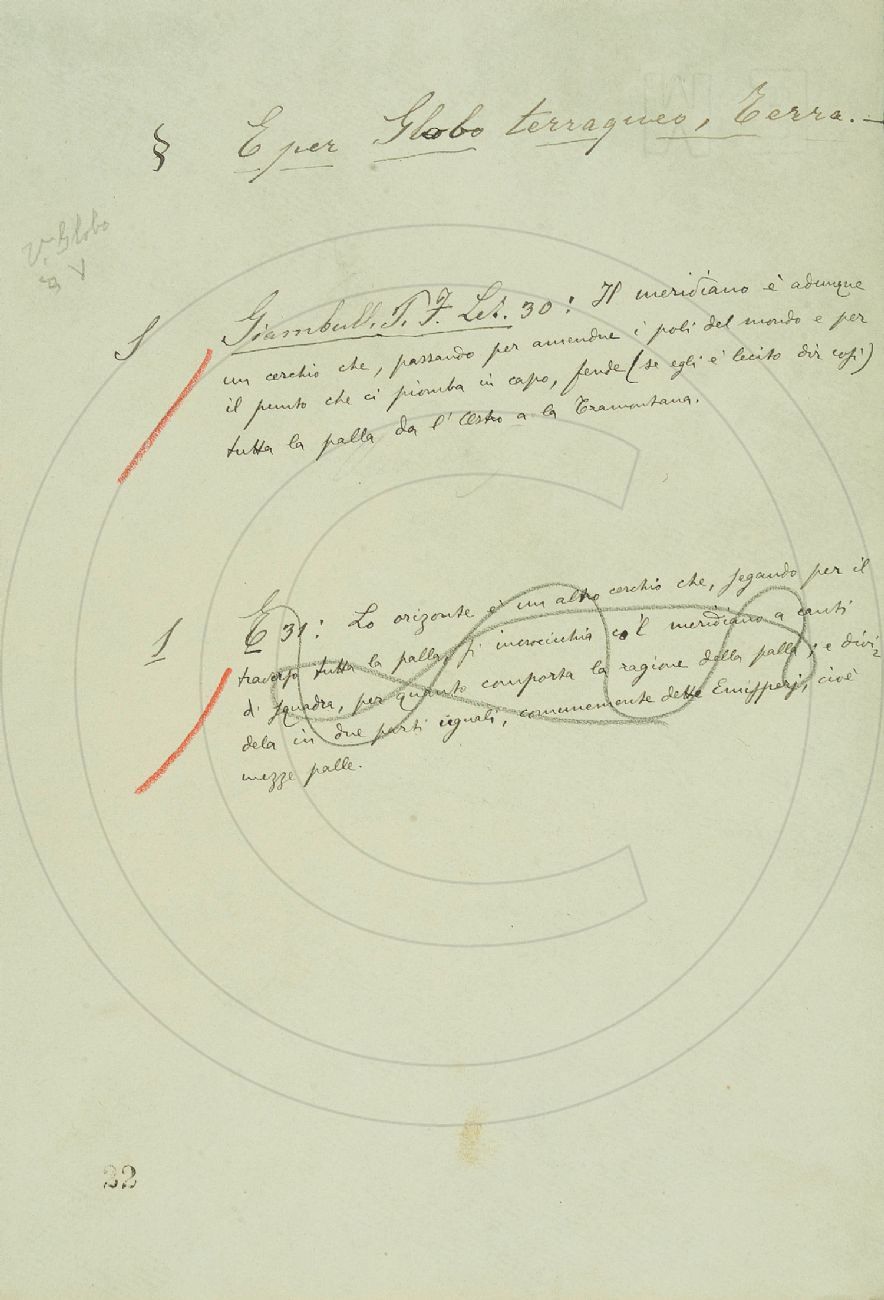 § E per Globo terraqueo, Terra. —
V. Globo
§ V
S Giambull. P. F. Let. 30: Il meridiano è adunque
un cerchio che, passando per amendue i poli del mondo e per
il punto che ci piomba in capo, fende (se egli è lecito dir così)
tutta la palla da l'Ostro a la Tramontana.
1 E 31: Lo orizonte è un altro cerchio che, segando per il
traverso tutta la palla, si incrocicchia co 'l meridiano a canti
di squadra, per quanto comporta la ragione della palla; e divi=
dela in due parti uguali, comunemente dette Emisperj, cioè
mezze palle.
22